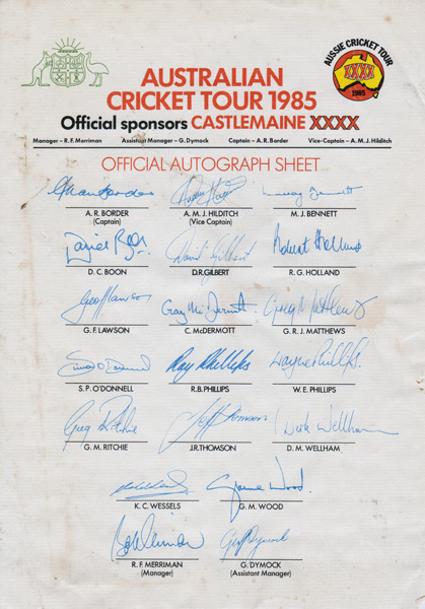 AUSSIE CRICKET TOUR
XXXX
1985
AUSTRALIAN
CRICKET TOUR 1985
Official sponsors CASTLEMAINE XXXX
Manager – R. F. Merriman Assistant Manager – G. Dymock Captain – A. R. Border Vice-Captain – A. M. J. Hilditch
OFFICIAL AUTOGRAPH SHEET
Allan Border Murray Bennett
A. R. BORDER A. M. J. HILDITCH M. J. BENNETT
(Captain) (Vice Captain)
David Boon David Gilbert Robert Holland
D. C. BOON D.R. GILBERT R. G. HOLLAND
Geoff Lawson Craig McDermott Greg Matthews
G. F. LAWSON C. McDERMOTT G. R. J. MATTHEWS
Simon O'Donnell Ray Phillips Wayne Phillips
S. P. O'DONNELL R. B. PHILLIPS W. E. PHILLIPS
Greg Ritchie Jeff Thomson Dirk Wellham
G. M. RITCHIE J.R. THOMSON D. M. WELLHAM
Graeme Wood
K. C. WESSELS G. M. WOOD
Bob Merriman Geoff Dymock
R. F. MERRIMAN G. DYMOCK
(Manager) (Assistant Manager)